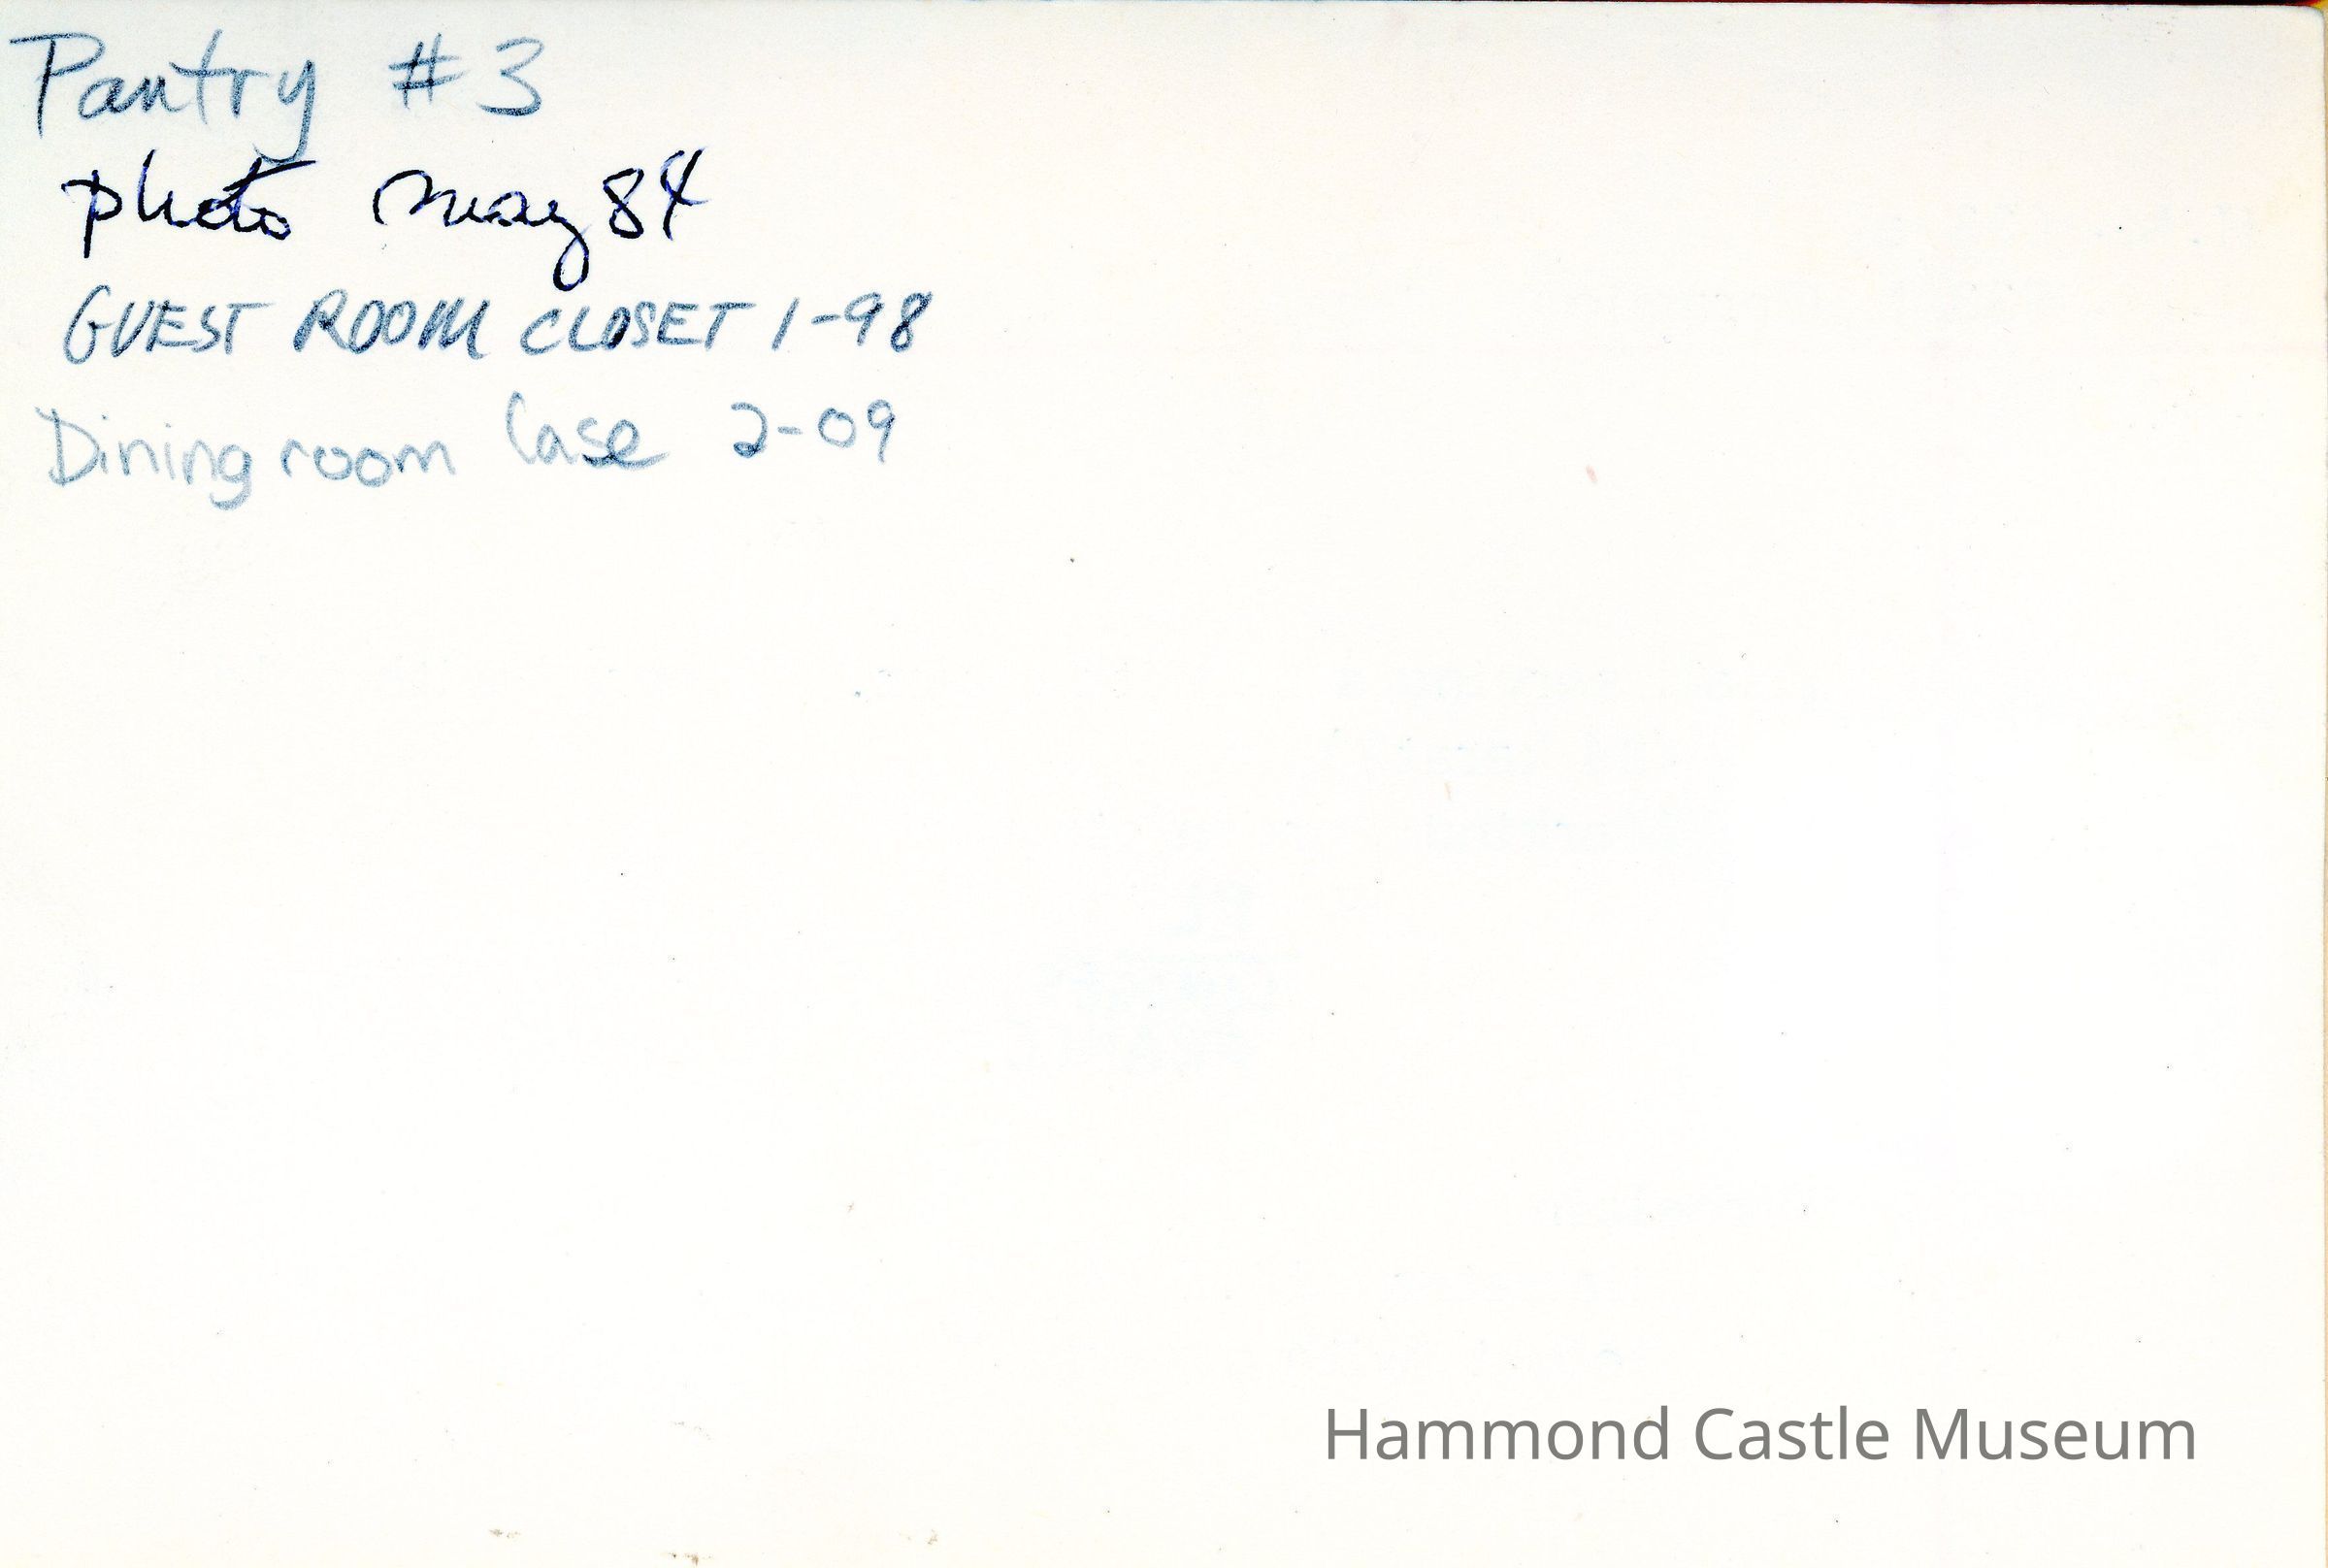 Pantry #3
photo May 84
GUEST ROOM CLOSET 1-98
Dining room Case 2-09
Hammond Castle Museum